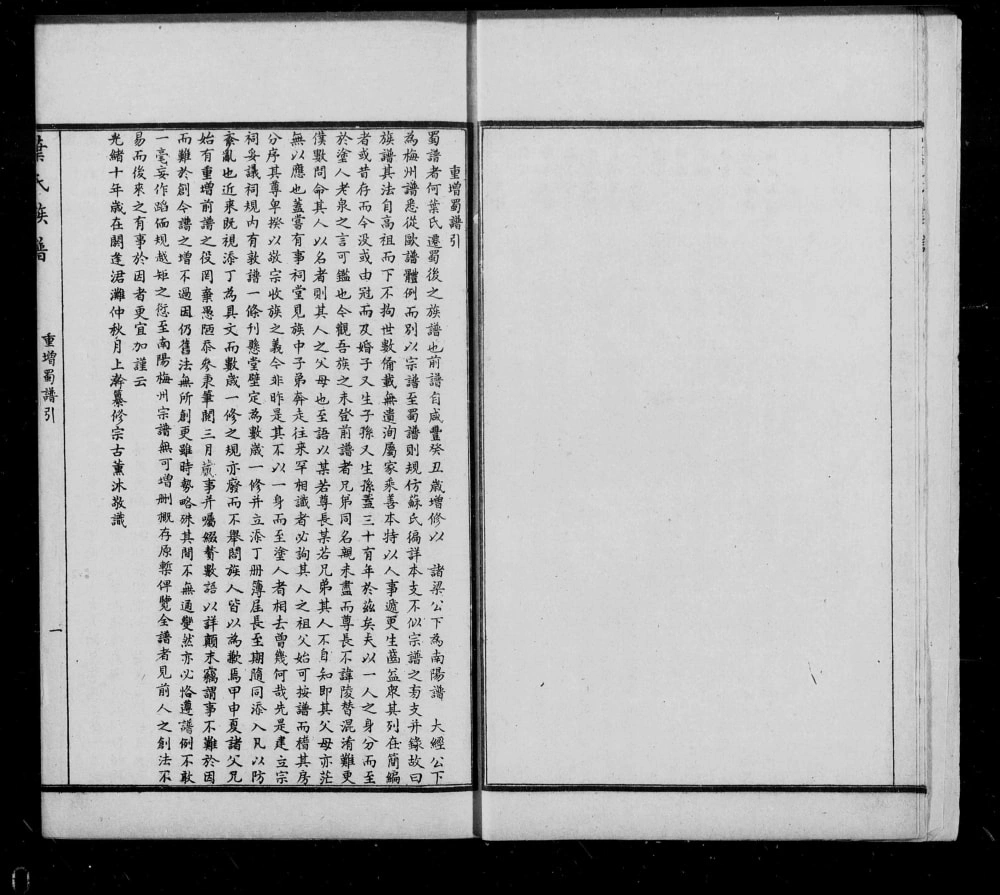 重增蜀譜引
蜀譜者何葉氏遷蜀後之族譜也前譜自咸豐癸丑歲增修以 諸梁公下為南陽譜 大經公下
為梅州譜悉從歐譜體例而別以宗譜至蜀譜則規仿蘇氏偏詳本支不似宗譜之旁支并錄故曰
族譜其法自高祖而下不拘世數備載無遺洵屬家乘善本持以人事遞更生齒益眾其列在簡編
者或昔存而今没或由冠而及婚子又生子孫又生孫蓋三十有年於茲矣夫以一人之身分而至
於塗人老泉之言可鑑也今觀吾族之未登前譜者兄弟同名親未盡而尊長不諱陵替混淆難更
僕數問命其人以名者則其人之父母也至語以某若尊長某若兄弟其人不自知即其父母亦茫
無以應也蓋嘗有事祠堂見族中子弟奔走往來罕相識者必詢其人之祖父始可按譜而稽其房
分序其尊卑揆以敬宗收族之義今非昨是其不以一身而至塗人者相去曾幾何哉先是建立宗
祠妥議祠規內有敦譜一條刊懸堂壁定為數歲一修并立添丁册簿屆長至期隨同添入凡以防
紊亂也近來既視添丁為具文而數歲一修之規亦廢而不舉閤族人皆以為歉焉甲申夏諸父兄
始有重增前譜之役罔棄愚陋忝參秉筆閱三月蕆事并囑綴贅數語以詳顛末竊謂事不難於因
而難於創今譜之增不過因仍舊法無所創更雖時勢略殊其間不無通變然亦必恪遵譜例不敢
一毫妄作蹈偭規越矩之愆至南陽梅州宗譜無可增删概存原槧俾覽全譜者見前人之創法不
易而後來之有事於因者更宜加謹云
光緒十年歲在閼逢涒灘仲秋月上澣纂修宗古薰沐敬識
葉氏族譜
重增蜀譜引
一